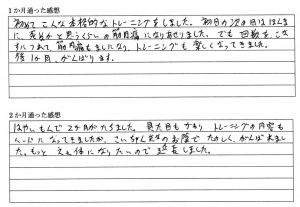 1か月通った感想
初めてこんな本格的なトレーニングをしました。初日の次の日はほんま
に、死ぬかと思うくらいの筋肉痛になりました。でも回数をこな
すにつれて、筋肉痛もましになり、トレーニングも楽しくなってきました。
後1か月、がんばります。
2か月通った感想
はやいもんで2ヶ月がたちました。見た目もかわり トレーニングの内容も
ハードになってきましたが、さいちゃん先生のお蔭で たのしく、がんば れまし
た。もっと ええ体になりたいので 延長しました。